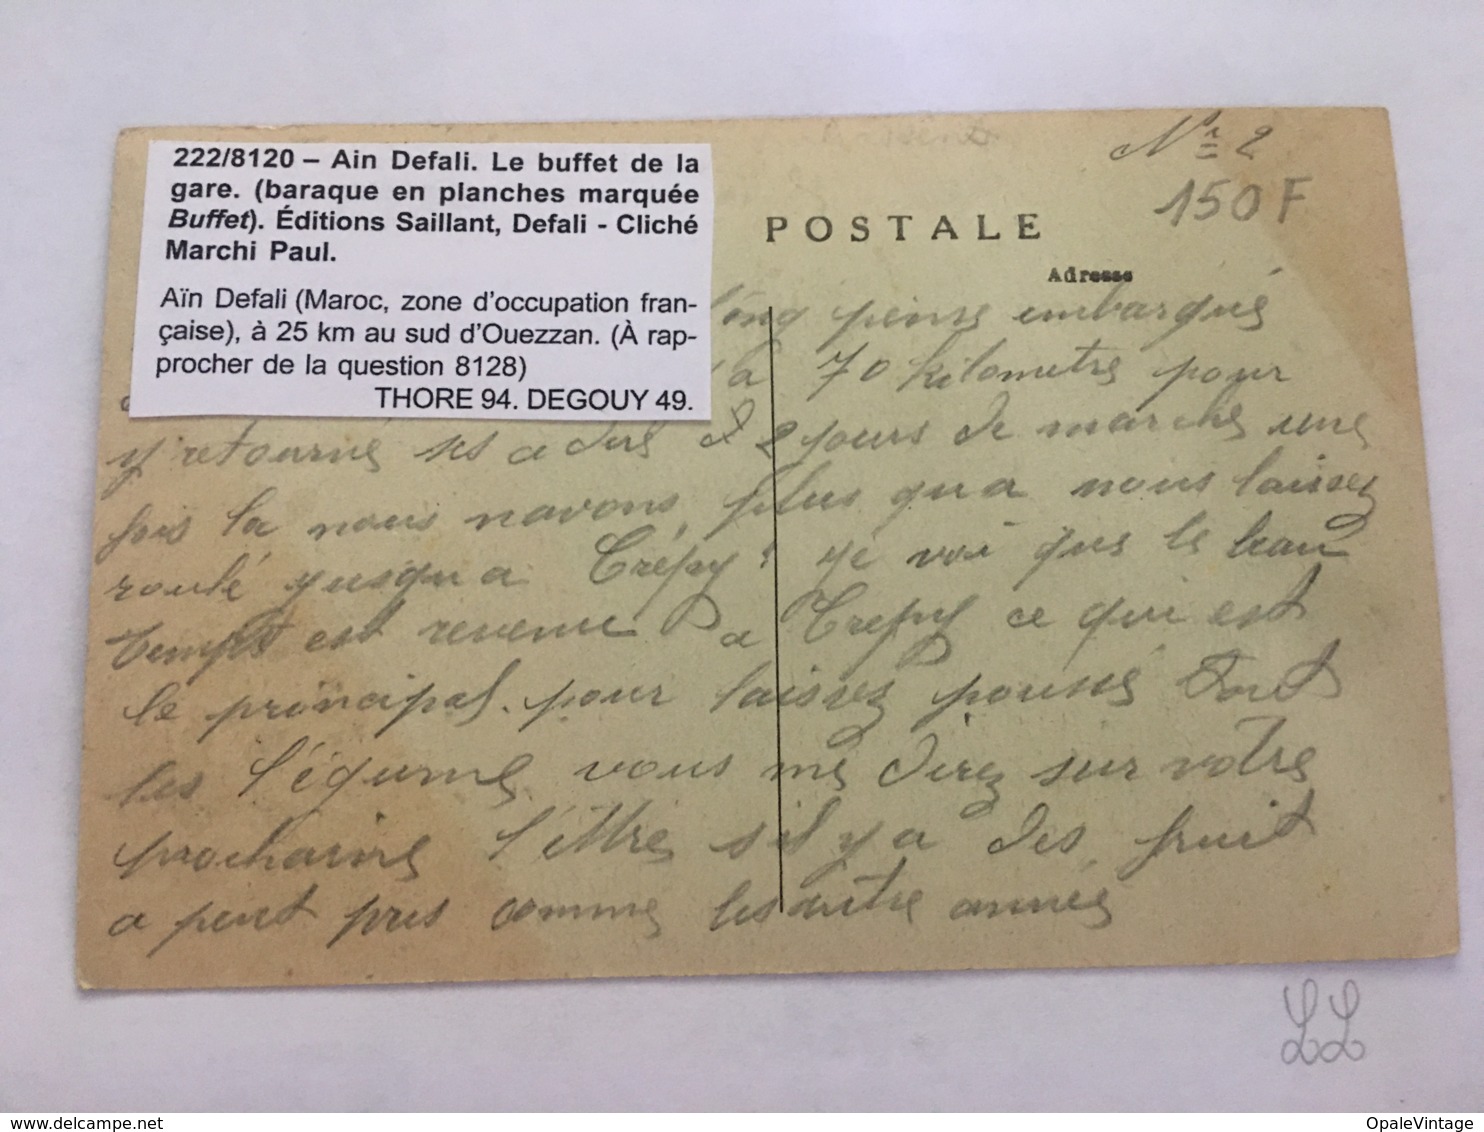 Nº 2
150F
222/8120 – Ain Defali. Le buffet de la
gare. (baraque en planches marquée
Buffet). Éditions Saillant, Defali - Cliché
Marchi Paul.
Aïn Defali (Maroc, zone d'occupation fran-
çaise), à 25 km au sud d'Ouezzan. (À rap-
procher de la question 8128)
THORE 94. DEGOUY 49.
POSTALE
Adresse
long pense embarqué
a 70 kilometre pour
y retourné ses a dire 2 jours de marche une
fois la nous navons plus qua nous laissez
roulé jusqu a Crépy! je voi que le beau
temps est revenu a Crepy ce qui est
le principal. pour laissez poussé tout
les légume vous me direz sur votre
prochaine lettre sil y a des fruit
a peut pres comme les autre année
LL
OpaleVintage